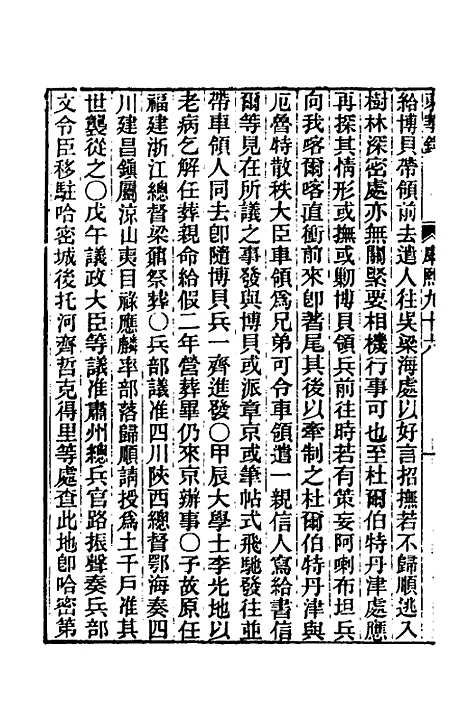 康熙九十六
給博貝帶領前去遣人往吳梁海處以好言招撫若不歸順逃入
樹林深密處亦無關緊要相機行事可也至杜爾伯特丹津處應
再探其情形或撫或勦博貝領兵前往時若有策妄阿喇布坦兵
向我喀爾喀直衝前來卽著尾其後以牽制之杜爾伯特丹津與
厄魯特散秩大臣車領爲兄弟可令車領遣一親信人寫給書信
爾等見在所議之事發與博貝或派章京或筆帖式飛馳發往並
帶車領人同去卽隨博貝兵一齊進發〇甲辰大學士李光地以
老病乞解任葬親命給假二年營葬畢仍來京辦事〇子故原任
福建浙江總督梁鼐祭葬〇兵部議准四川陝西總督鄂海奏四
川建昌鎭屬涼山夷目祿應麟率部落歸順請授爲土千戶准其
世襲從之〇戊午議政大臣等議准肅州總兵官路振聲奏兵部
文令臣移駐哈密城後托河齊哲克得里等處查此地卽哈密第